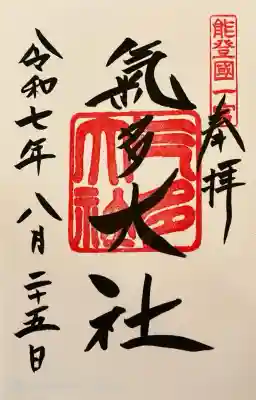 能登國一宮
奉拝
氣多大社
気多大社
令和七年八月二十五日